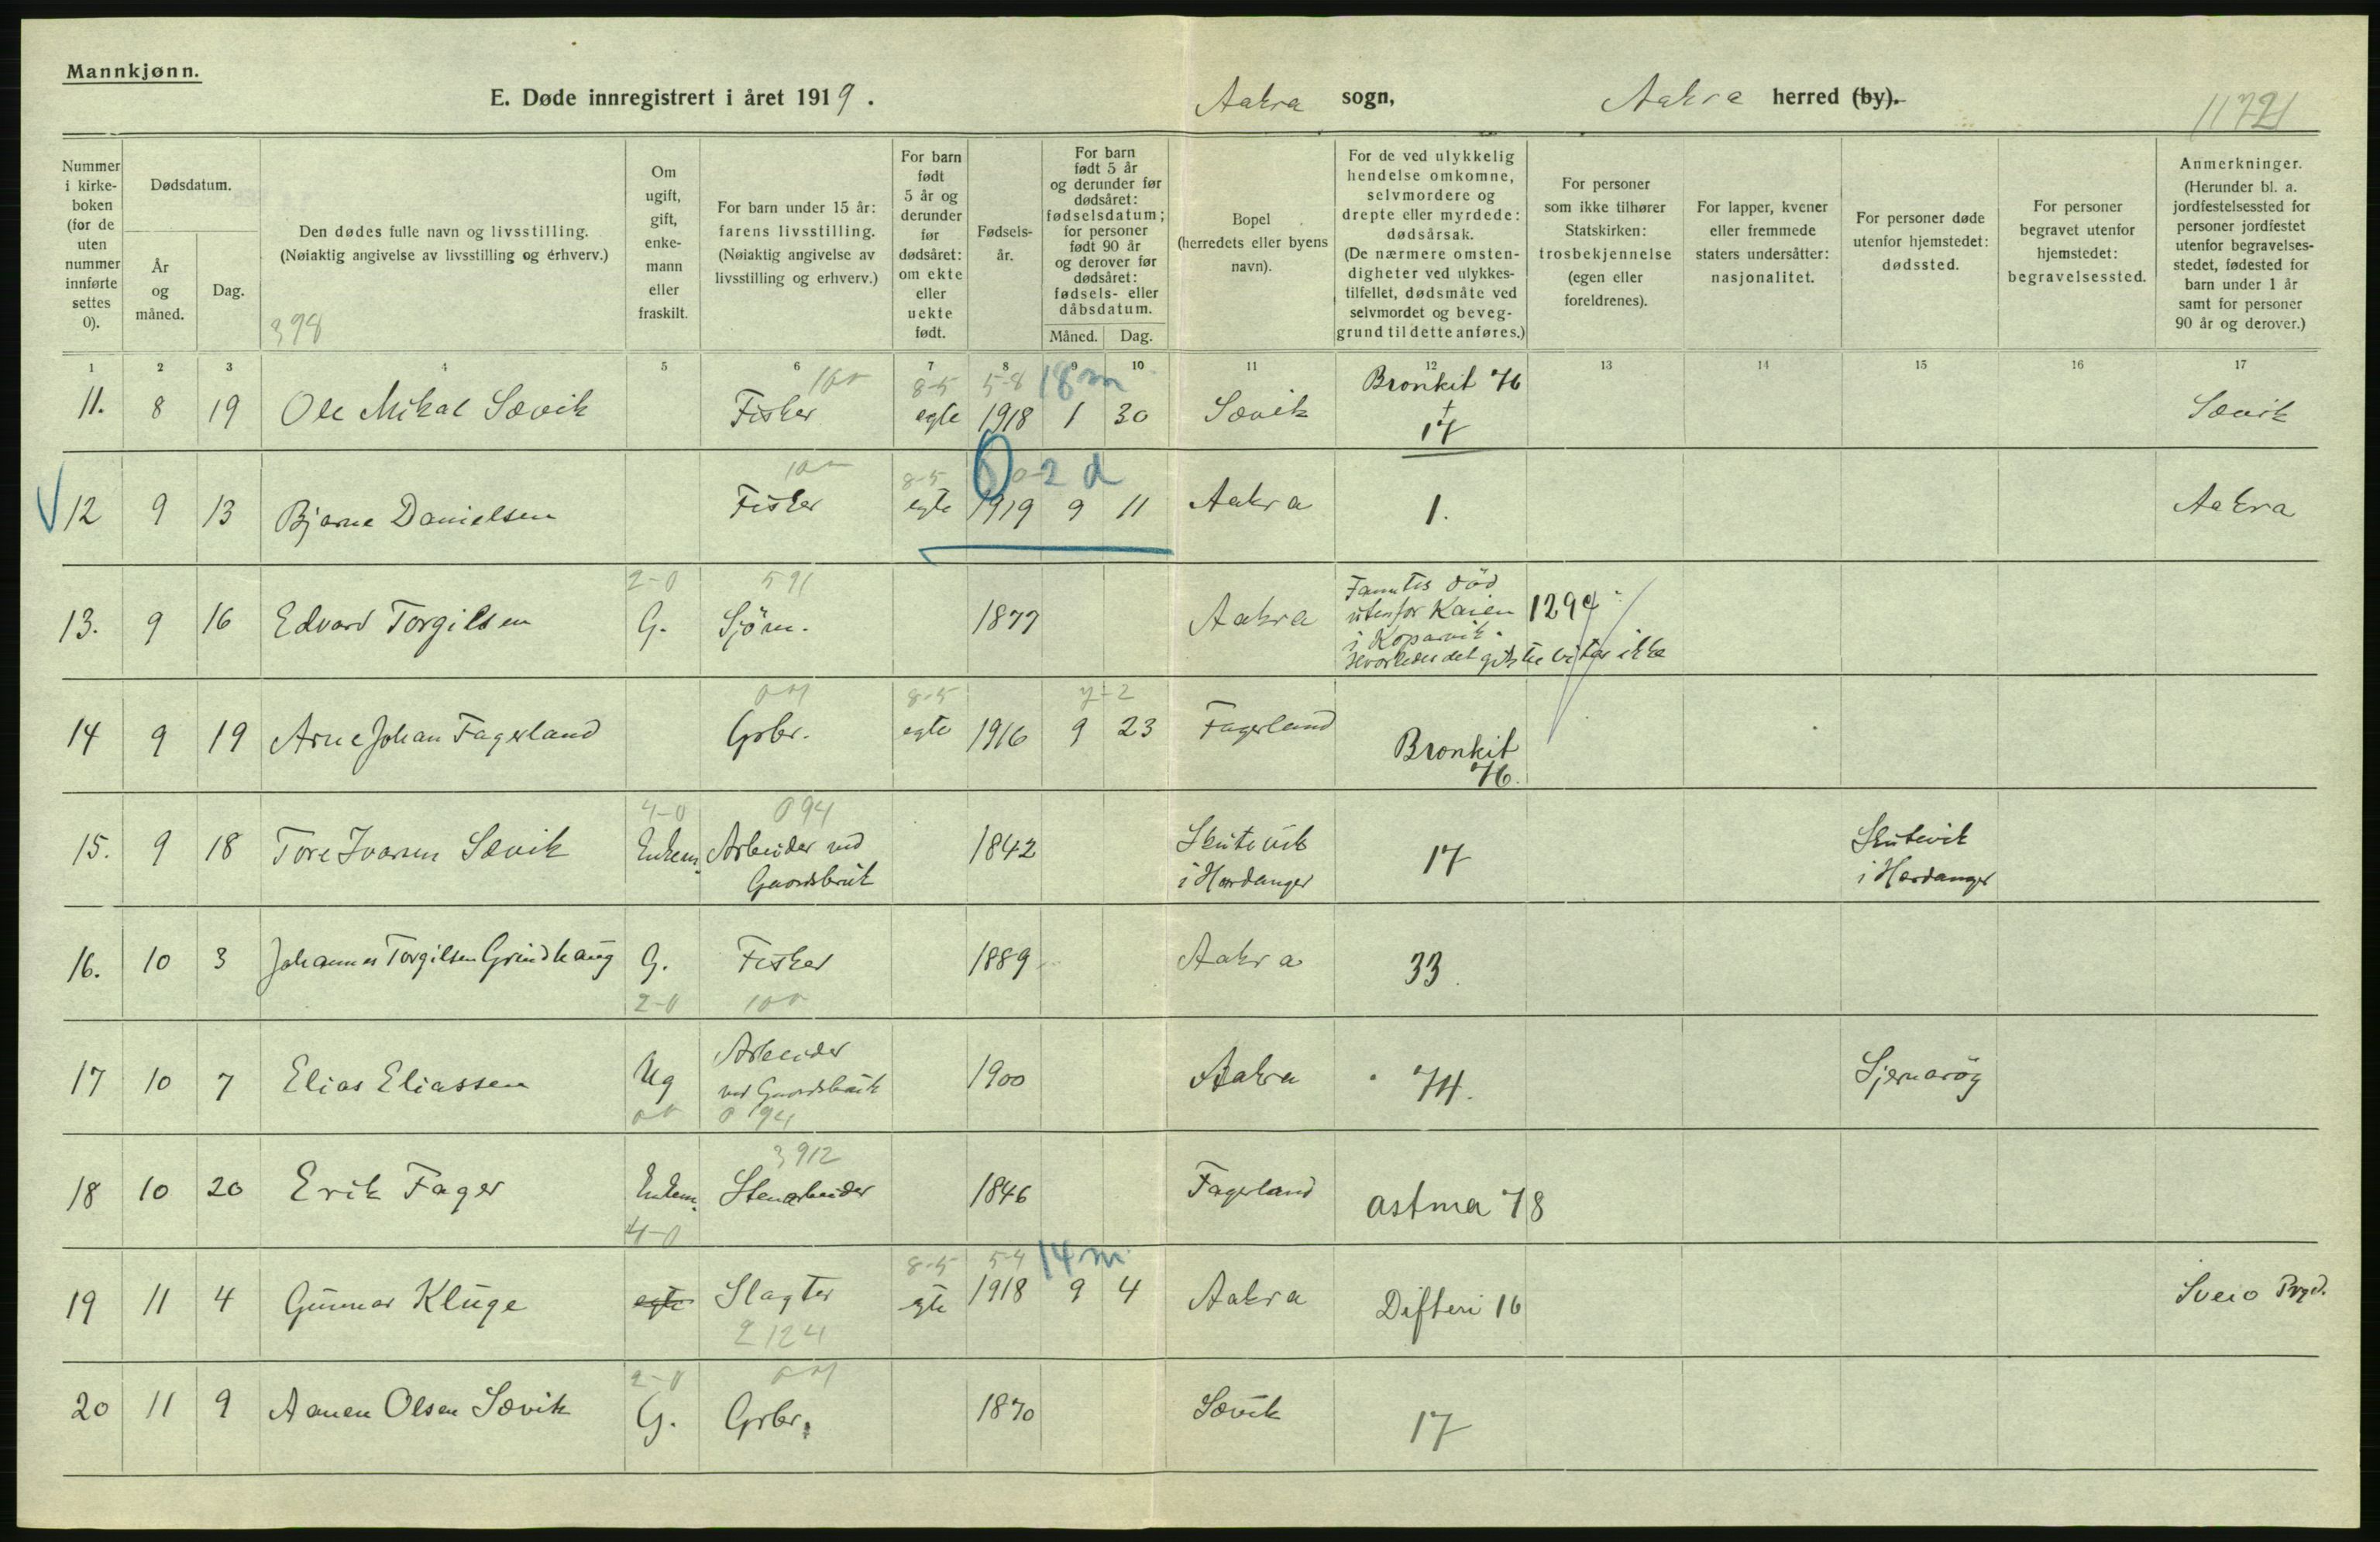 Mannkjønn.
E. Døde innregistrert i året 1919. Aakra sogn, Aakra herred (by).
11721
Nummer i kirke-boken (for de uten nummer innførte settes 0).
Dødsdatum.
År og måned.
Dag.
Den dødes fulle navn og livsstilling.
(Nøiaktig angivelse av livsstilling og erhverv.)
398
Om ugift, gift, enke-mann eller fraskilt.
For barn under 15 år: farens livsstilling.
(Nøiaktig angivelse av livsstilling og erhverv.)
For barn født 5 år og derunder før dødsåret: om ekte eller uekte født.
Fødsels-år.
For barn født 5 år og derunder før dødsåret: fødselsdatum; for personer født 90 år og derover før dødsåret: fødsels- eller dåbsdatum.
Måned. Dag.
Bopel (herredets eller byens navn).
For de ved ulykkelig hendelse omkomne, selvmordere og drepte eller myrdede: dødsårsak.
(De nærmere omsten-digheter ved ulykkes-tilfellet, dødsmåte ved selvmordet og beveg-grund til dette anføres.)
For personer som ikke tilhører Statskirken: trosbekjennelse (egen eller foreldrenes).
For lapper, kvener eller fremmede staters undersåtter: nasjonalitet.
For personer døde utenfor hjemstedet: dødssted.
For personer begravet utenfor hjemstedet: begravelsessted.
Anmerkninger.
(Herunder bl. a. jordfestelsessted for personer jordfestet utenfor begravelses-stedet, fødested for barn under 1 år samt for personer 90 år og derover.)
1 2 3 4 5 6 7 8 9 10 11 12 13 14 15 16 17
100 8-5 5-8 18 m Bronkit 76
11. 8 19 Ole Mikal Sævik Fisker egte 1918 1 30 Sævik + 17 Sævik
100 8-5 0-2 d
12 9 13 Bjarne Danielsen Fisker egte 1919 9 11 Aakra 1. Aakra
2-0 591 Fantes död
13. 9 16 Edvard Torgilsen G. Sjöm. 1877 Aakra utenfor Kaien 1294
i Kopervik.
Hvorledes det gik til vites ikke
8-5 7-2
14 9 19 Arne Johan Fagerland Grbr. egte 1916 9 23 Fagerland Bronkit
76.
4-0 094
15. 9 18 Tore Ivarsen Sævik Enkem. Arbeider ved 1842 Skutevik 17 Skutevik
Gaardsbruk i Hardanger i Hardanger
16. 10 3 Johannes Torgilsen Grindhaug G. Fisker 1889 Aakra 33.
2-0 100
17 10 7 Elias Eliassen Ug Arbeider 1900 Aakra 74. Sjernaröy
ved Gaardsbruk
094
3912
18 10 20 Erik Fager Enkem. Stenarbeider 1846 Fagerland astma 78
4-0
8-5 5-4 14 m
19 11 4 Gunnar Kluge egte Slagter egte 1918 9 4 Aakra Difteri 16 Sveio Prgd.
2124
2-0
20 11 9 Aanen Olsen Sævik G. Grbr. 1870 Sævik 17